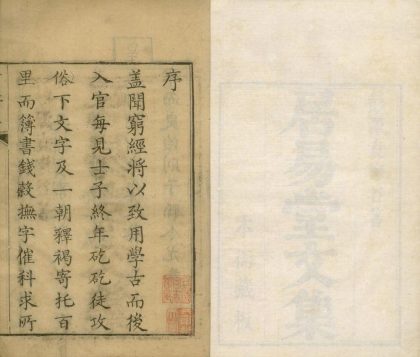 序
蓋聞窮經將以致用學古而後
入官每見士子終年矻矻徒攻
俗下文字及一朝釋褐寄托百
里而簿書錢穀撫字催科求所